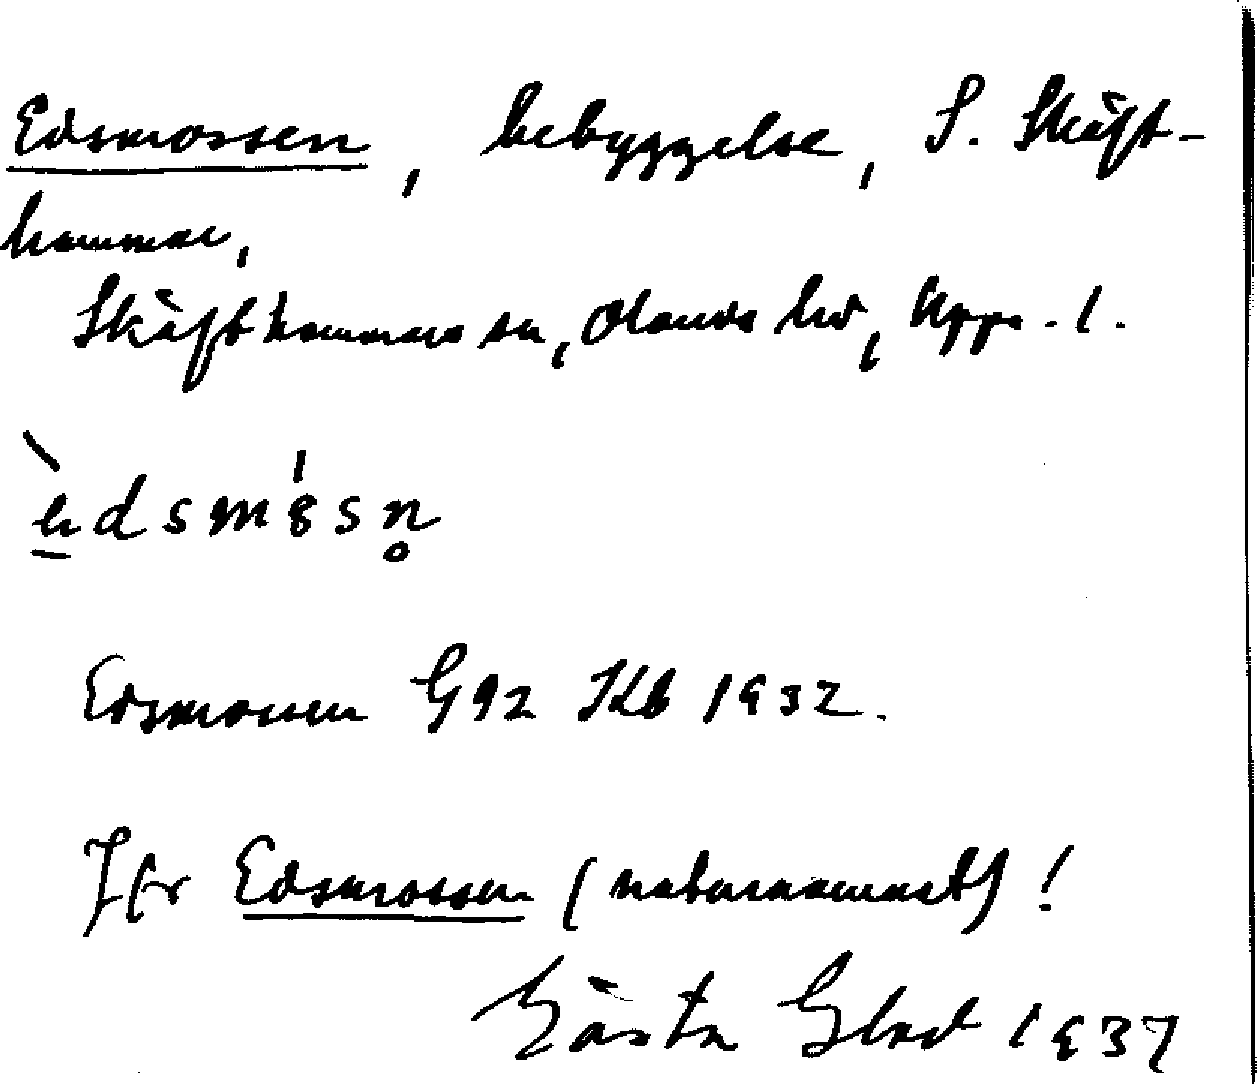 Edsmossen, bebyggelse, S. Skäft-
hammar,
Skäfthammars sn, Olands hd, Upps. l.
èdsm8́sn̥
Edsmossen G92 Kb 1932.
Jfr Edsmossen (naturnamnet)!
Gösta Glad 1937